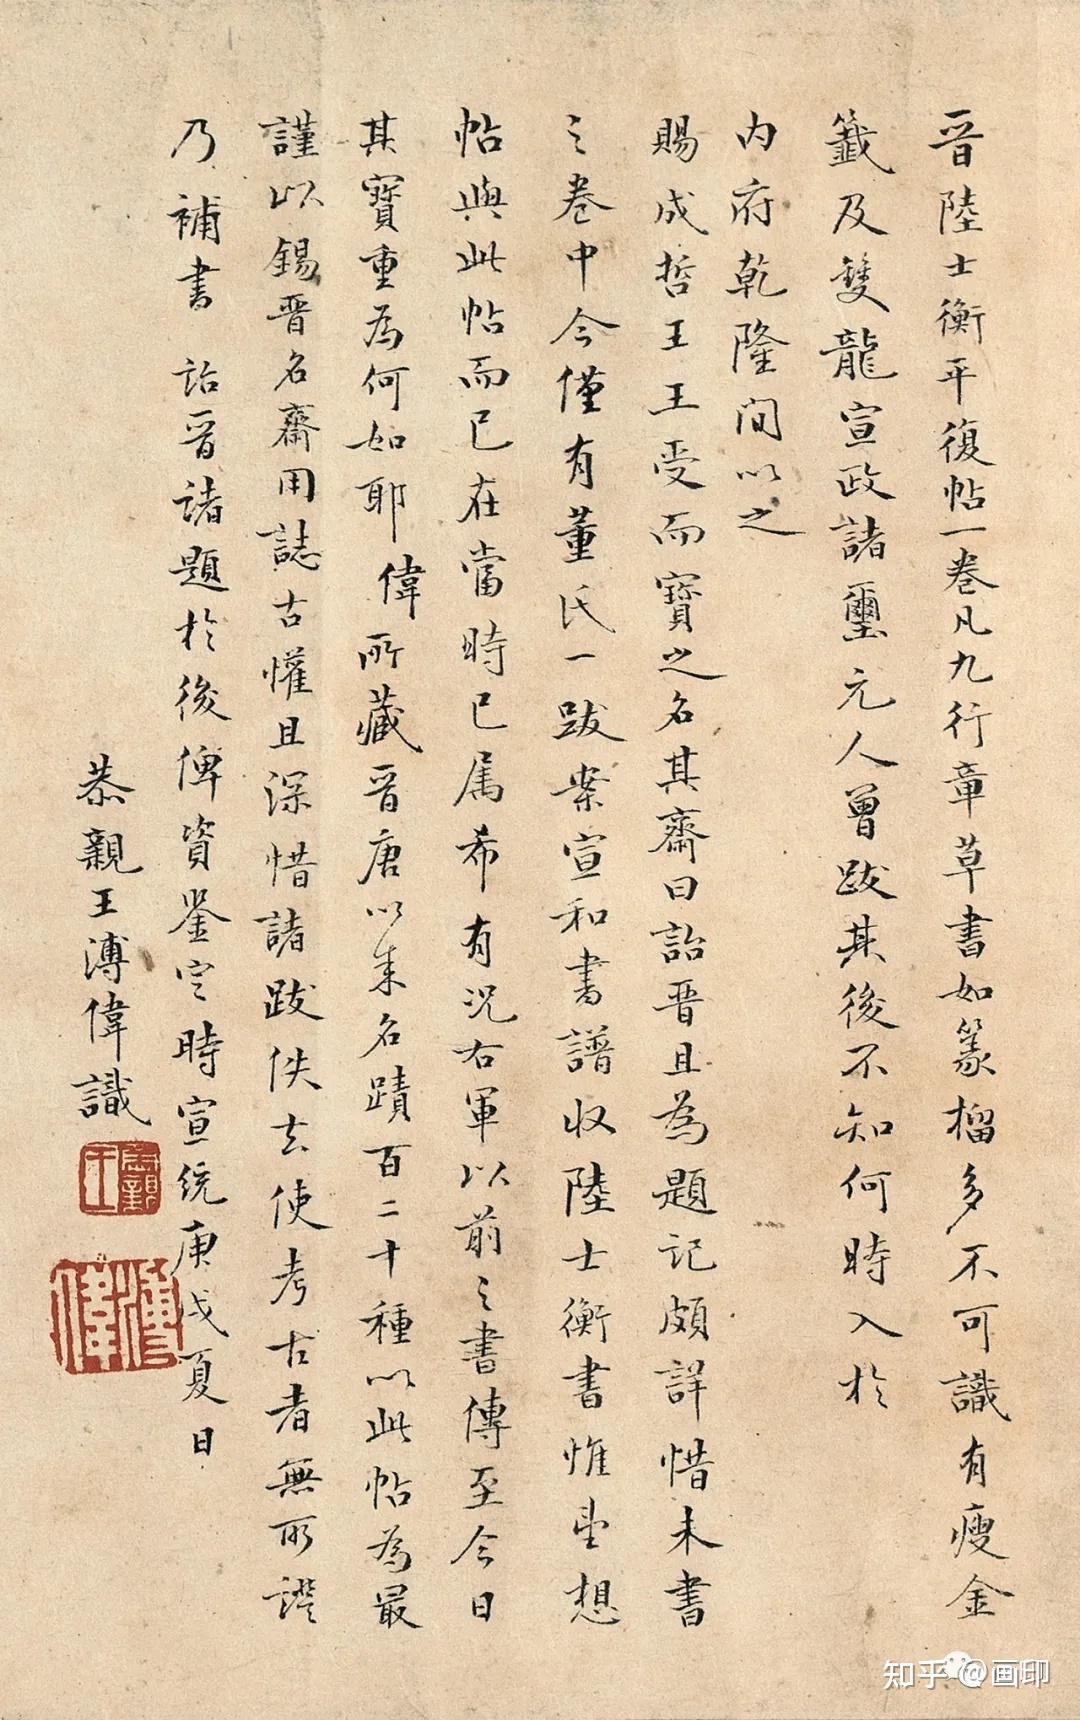 晋陸士衡平復帖一卷凡九行章草書如篆榴多不可識有瘦金
籤及雙龍宣政諸璽元人曾跋其後不知何時入於
内府乾隆間以之
賜成哲王王受而寶之名其齋曰詒晋且為題記頗詳惜未書
之卷中今僅有董氏一跋案宣和書譜收陸士衡書惟此想
帖與此帖而已在當時已属希有況右軍以前之書傳至今日
其寶重為何如耶偉所藏晋唐以来名蹟百二十種以此帖為最
謹以錫晋名齋用誌古懽且深惜諸跋佚去使考古者無所證
乃補書詒晋諸題於後俾資鉴定時宣統庚戌夏日
恭親王溥偉識
恭親王
溥偉
知乎 @画印